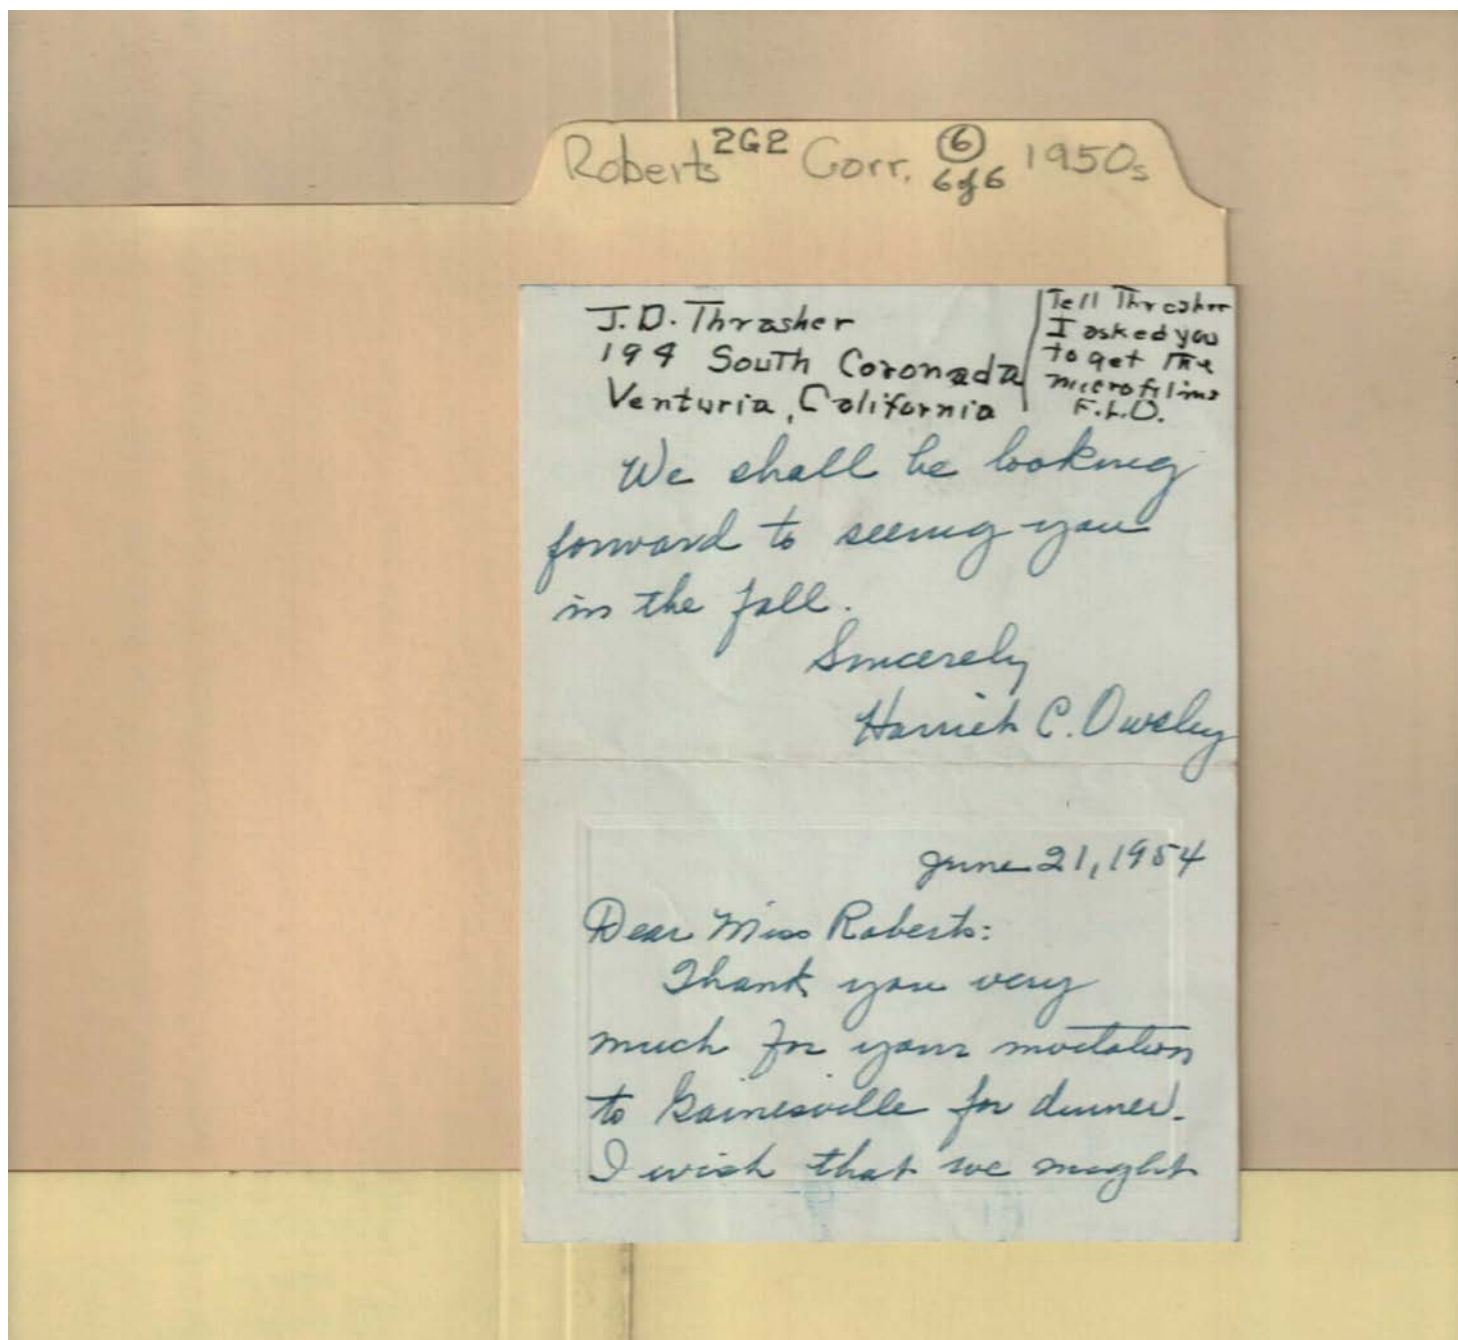 Roberts 2G2 Corr. 6 1950s
6 of 6
J.D. Thrasher
194 South Coronada
Venturia, California
Tell Thrasher
I asked you
to get the
microfilms
F.L.O.
We shall be looking
forward to seeing you
in the fall.
Sincerely
Harriet C. Owsley
June 21, 1954
Dear Miss Roberts:
Thank you very
much for your invitation
to Gainesville for dinner.
I wish that we might